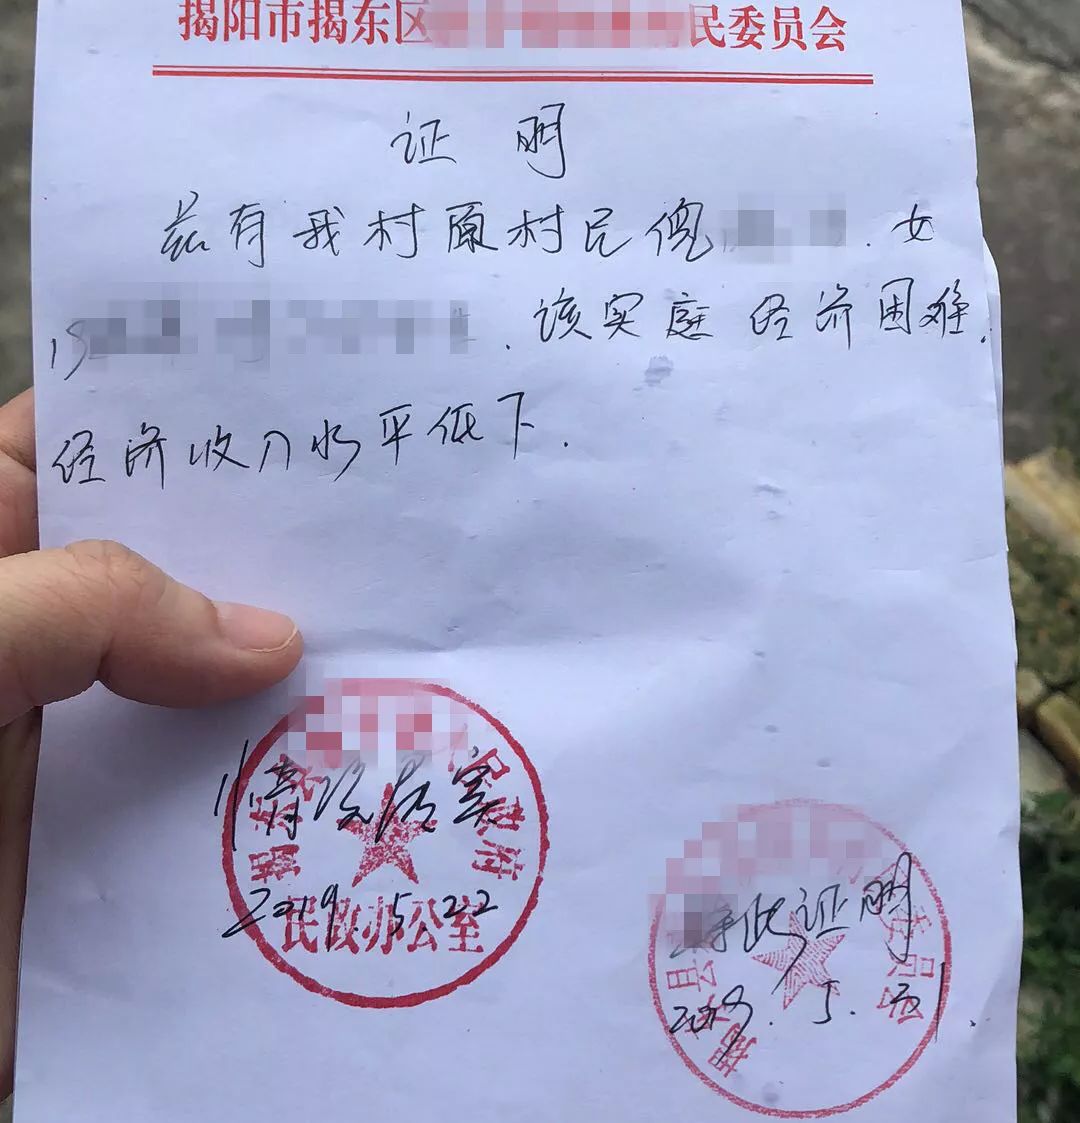 揭阳市揭东区 民委员会
证明
兹有我村原村民 女
该实庭经济困难,
经济收入水平低下.
情况属实
2019.5.22
民政办公室
特此证明
2019.5.